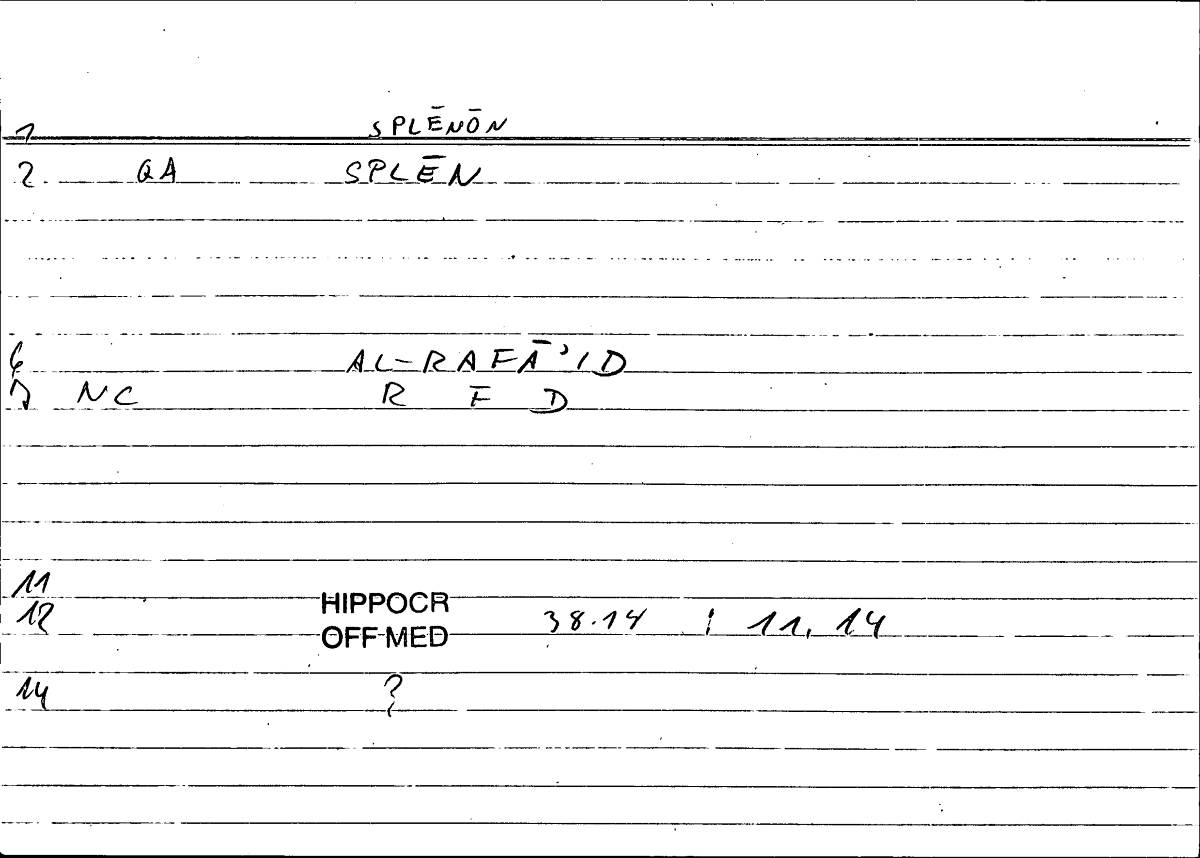 1 SPLĒNŌN
2. QA SPLĒN
6 AL-RAFĀ'ID
7 NC R F D
11
12 HIPPOCR 38.14 ; 11, 14
OFF MED
14 ?